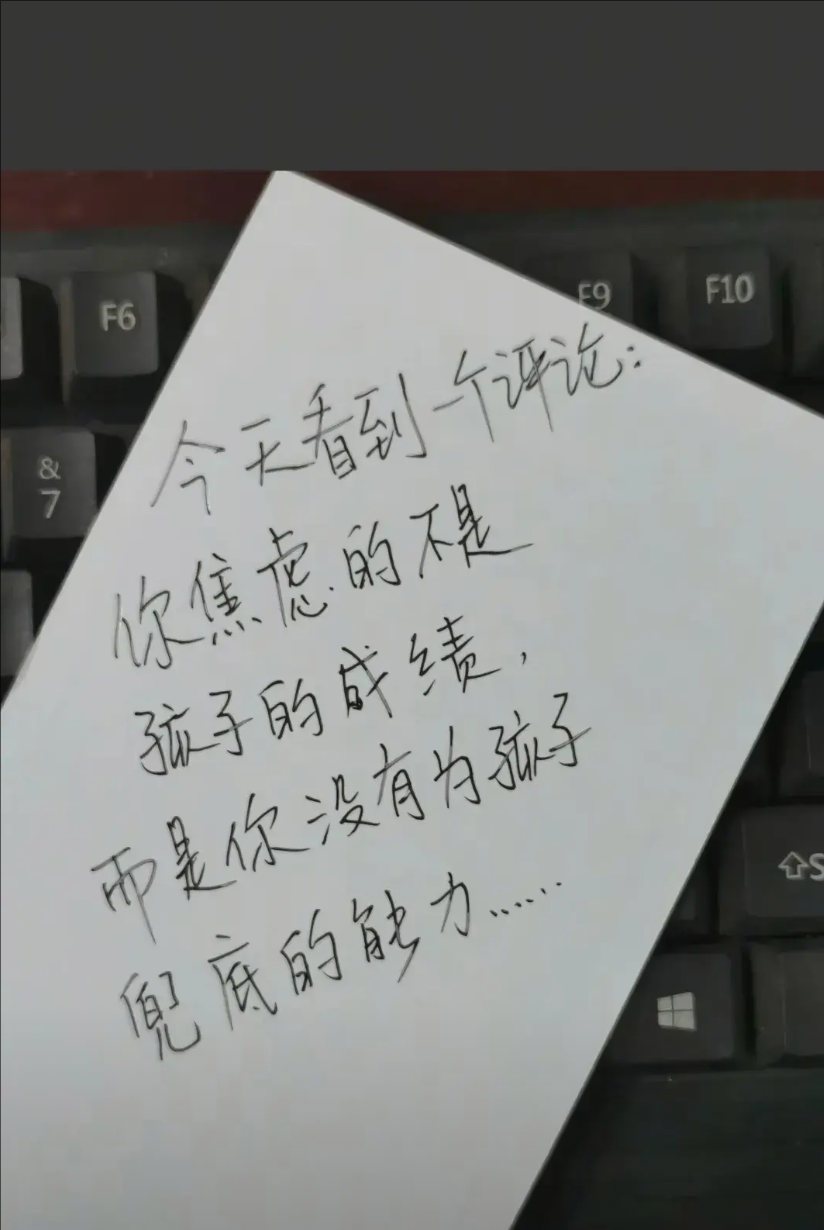 F6
F9
F10
&
7
今天看到一个评论：
你焦虑的不是
孩子的成绩，
而是你没有为孩子
兜底的能力……
⇧S